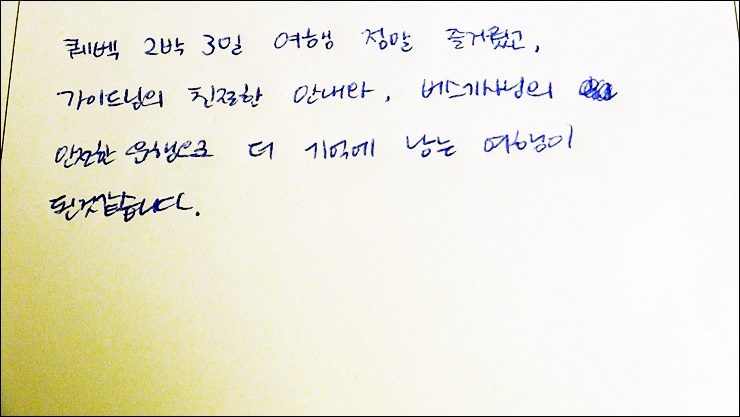 퀘벡 2박 3일 여행 정말 즐거웠고,
가이드님의 친절한 안내와, 버스기사님의
안전한 운행으로 더 기억에 남는 여행이
된것같습니다.